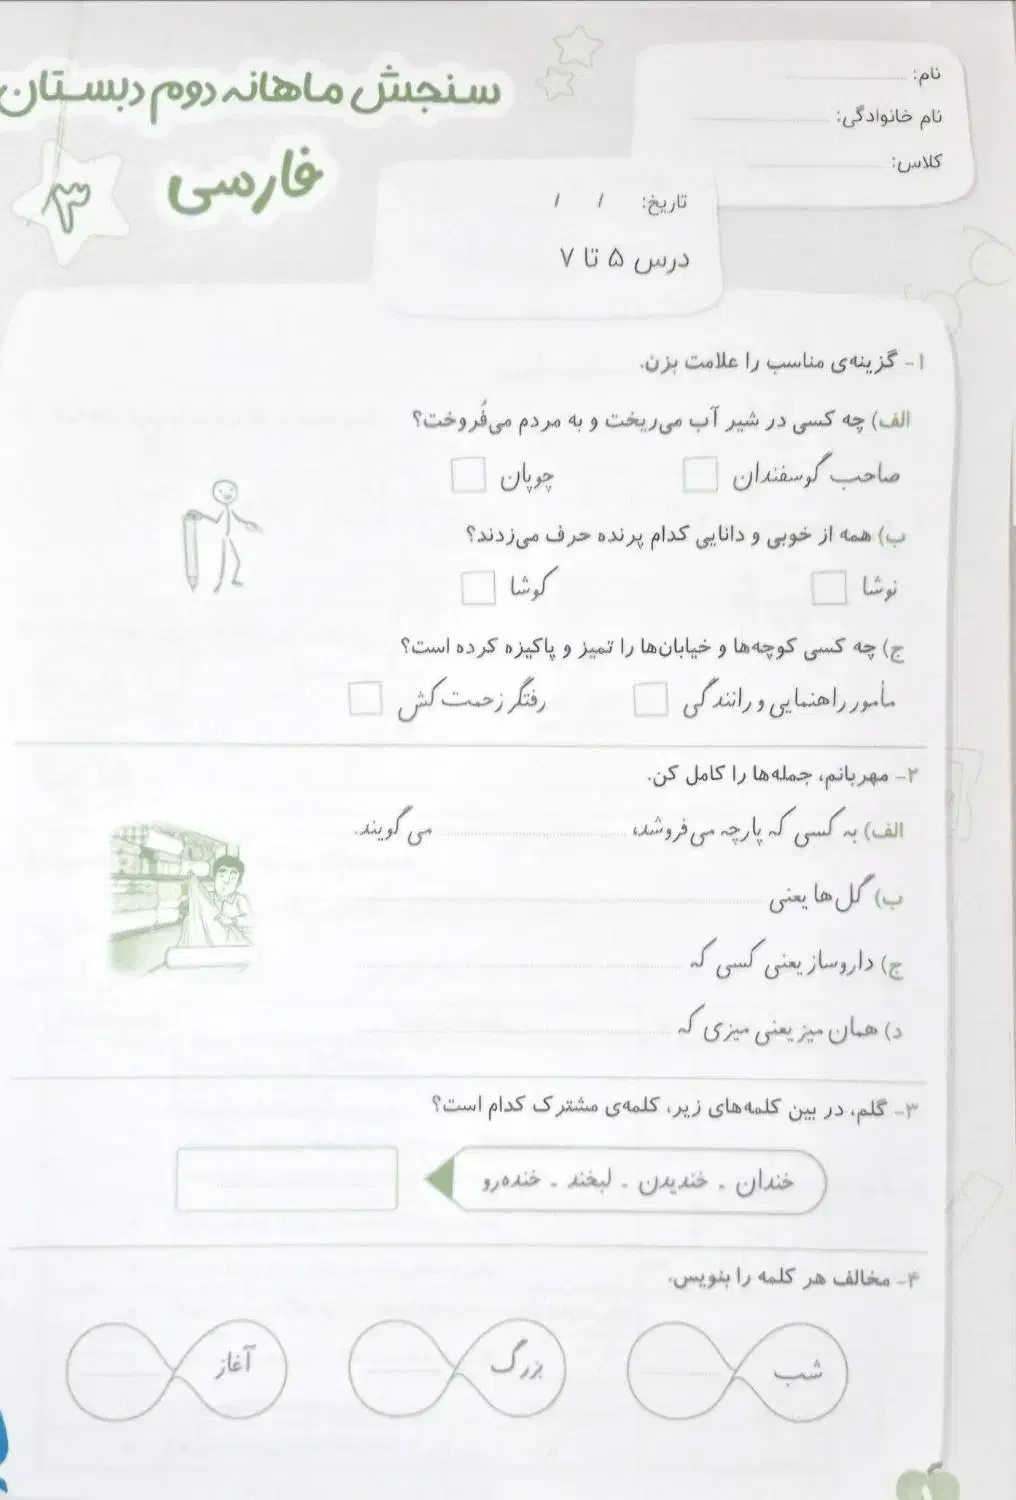 نام:
نام خانوادگی:
کلاس:
سنجش ماهانه دوم دبستان
فارسی
۳
تاریخ: / /
درس ۵ تا ۷
۱- گزینه‌ی مناسب را علامت بزن.
الف) چه کسی در شیر آب می‌ریخت و به مردم می‌فُروخت؟
صاحب گوسفندان چوپان
ب) همه از خوبی و دانایی کدام پرنده حرف می‌زدند؟
نوشا کوشا
ج) چه کسی کوچه‌ها و خیابان‌ها را تمیز و پاکیزه کرده است؟
مأمور راهنمایی و رانندگی رفتگر زحمت‌کش
۲- مهربانم، جمله‌ها را کامل کن.
الف) به کسی که پارچه می‌فروشد، می‌گویند.
ب) گل‌ها یعنی
ج) داروساز یعنی کسی که
د) همان میز یعنی میزی که
۳- گلم، در بین کلمه‌های زیر، کلمه‌ی مشترک کدام است؟
خندان - خندیدن - لبخند - خنده‌رو
۴- مخالف هر کلمه را بنویس.
شب بزرگ آغاز
۱